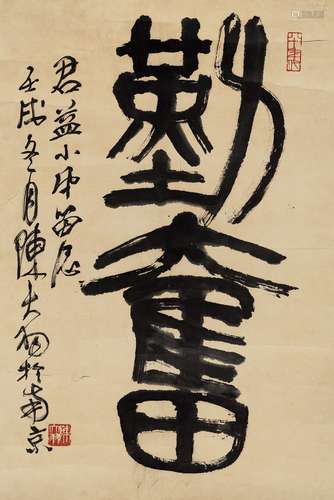 勤奮
君益小弟留念
壬戌冬月陳大羽於南京